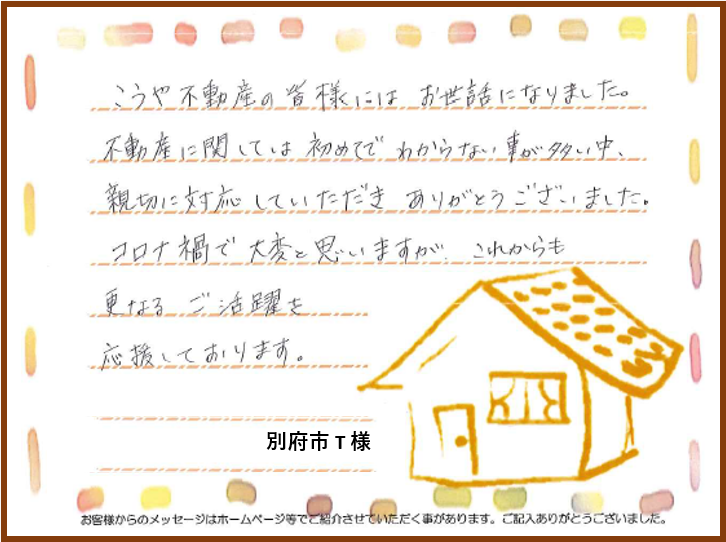 こうや不動産の皆様には お世話になりました。
不動産に関しては 初めてで わからない事が多い中、
親切に対応していただき ありがとうございました。
コロナ禍で 大変と思いますが、これからも
更なる ご活躍を
応援しております。
別府市T様
お客様からのメッセージはホームページ等でご紹介させていただく事があります。ご記入ありがとうございました。